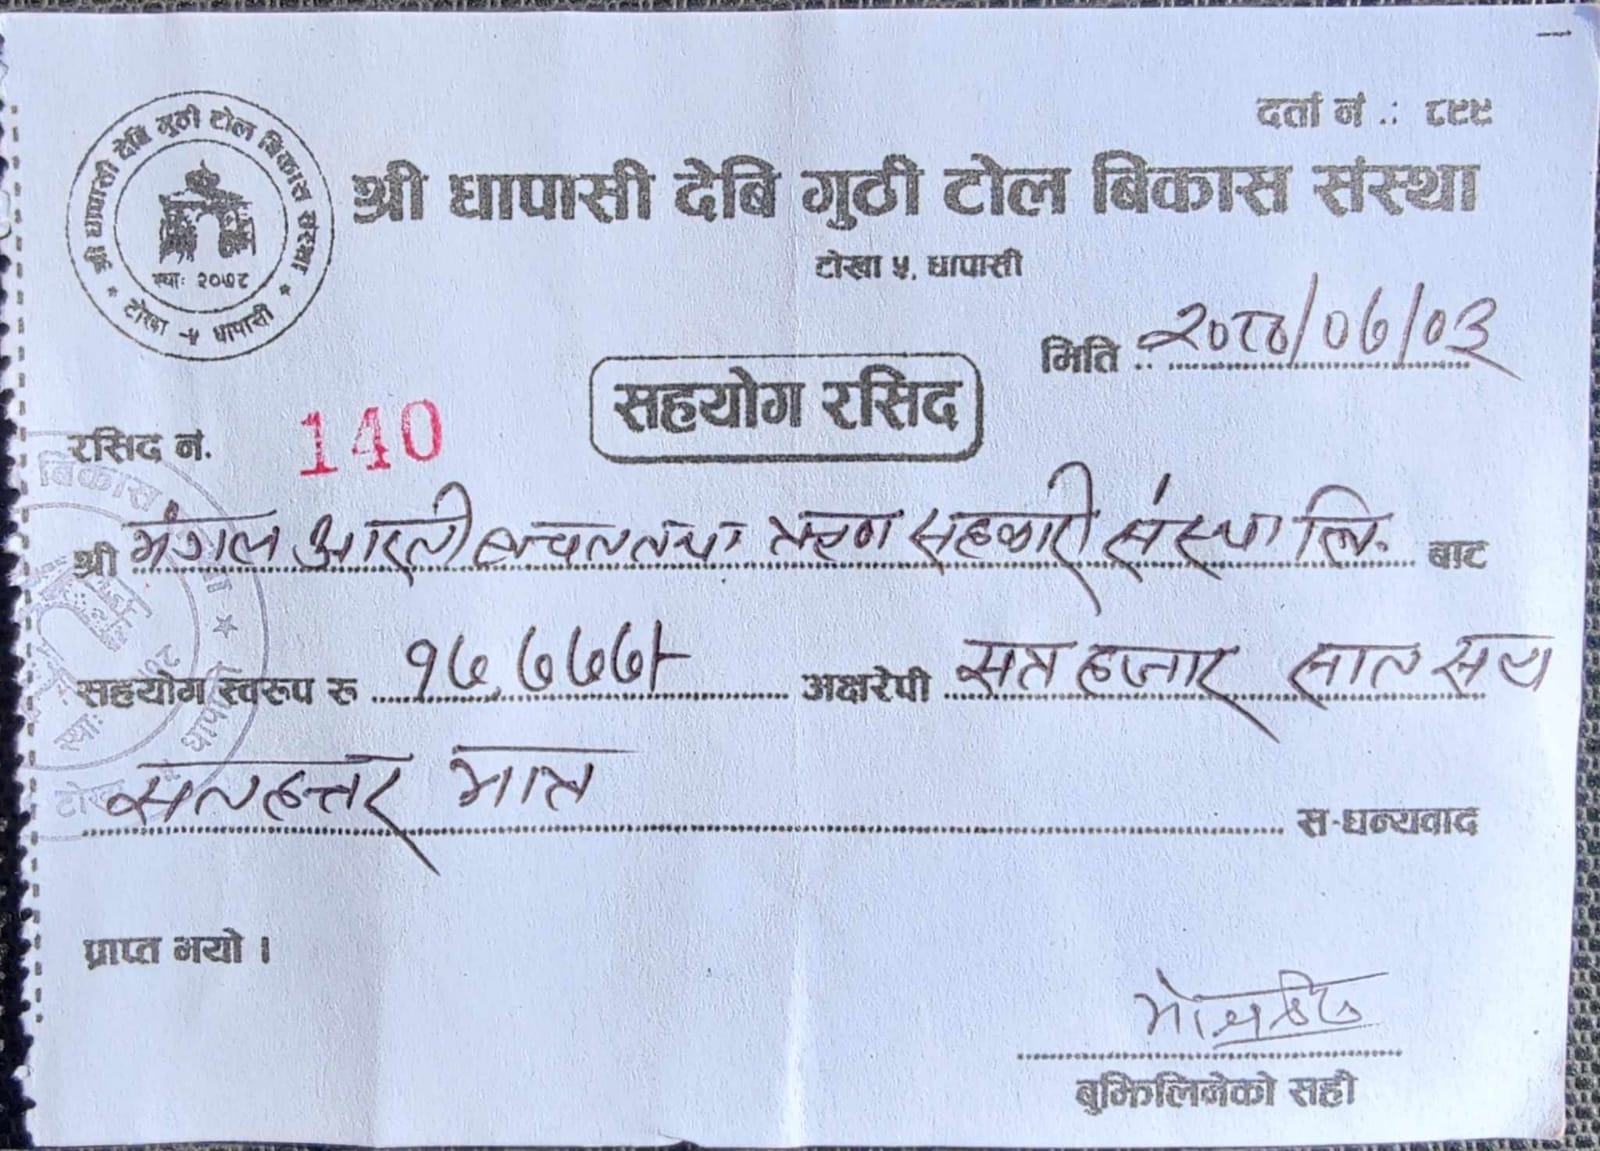 दर्ता नं .: ८९९
श्री धापासी देबि गुठी टोल बिकास संस्था
श्री धापासी देबि गुठी टोल बिकास संस्था
स्था: २०७८
टोखा -५ धापासी
टोखा ५, धापासी
मिति .. २०८०/०७/०३
सहयोग रसिद
रसिद नं. 140
श्री मंगल आरती बचत तथा ऋण सहकारी संस्था लि. बाट
सहयोग स्वरुप रु १७,७७७/- अक्षरेपी सत्र हजार सात सय
सतहत्तर मात्र स-धन्यवाद
प्राप्त भयो ।
बुझिलिनेको सही